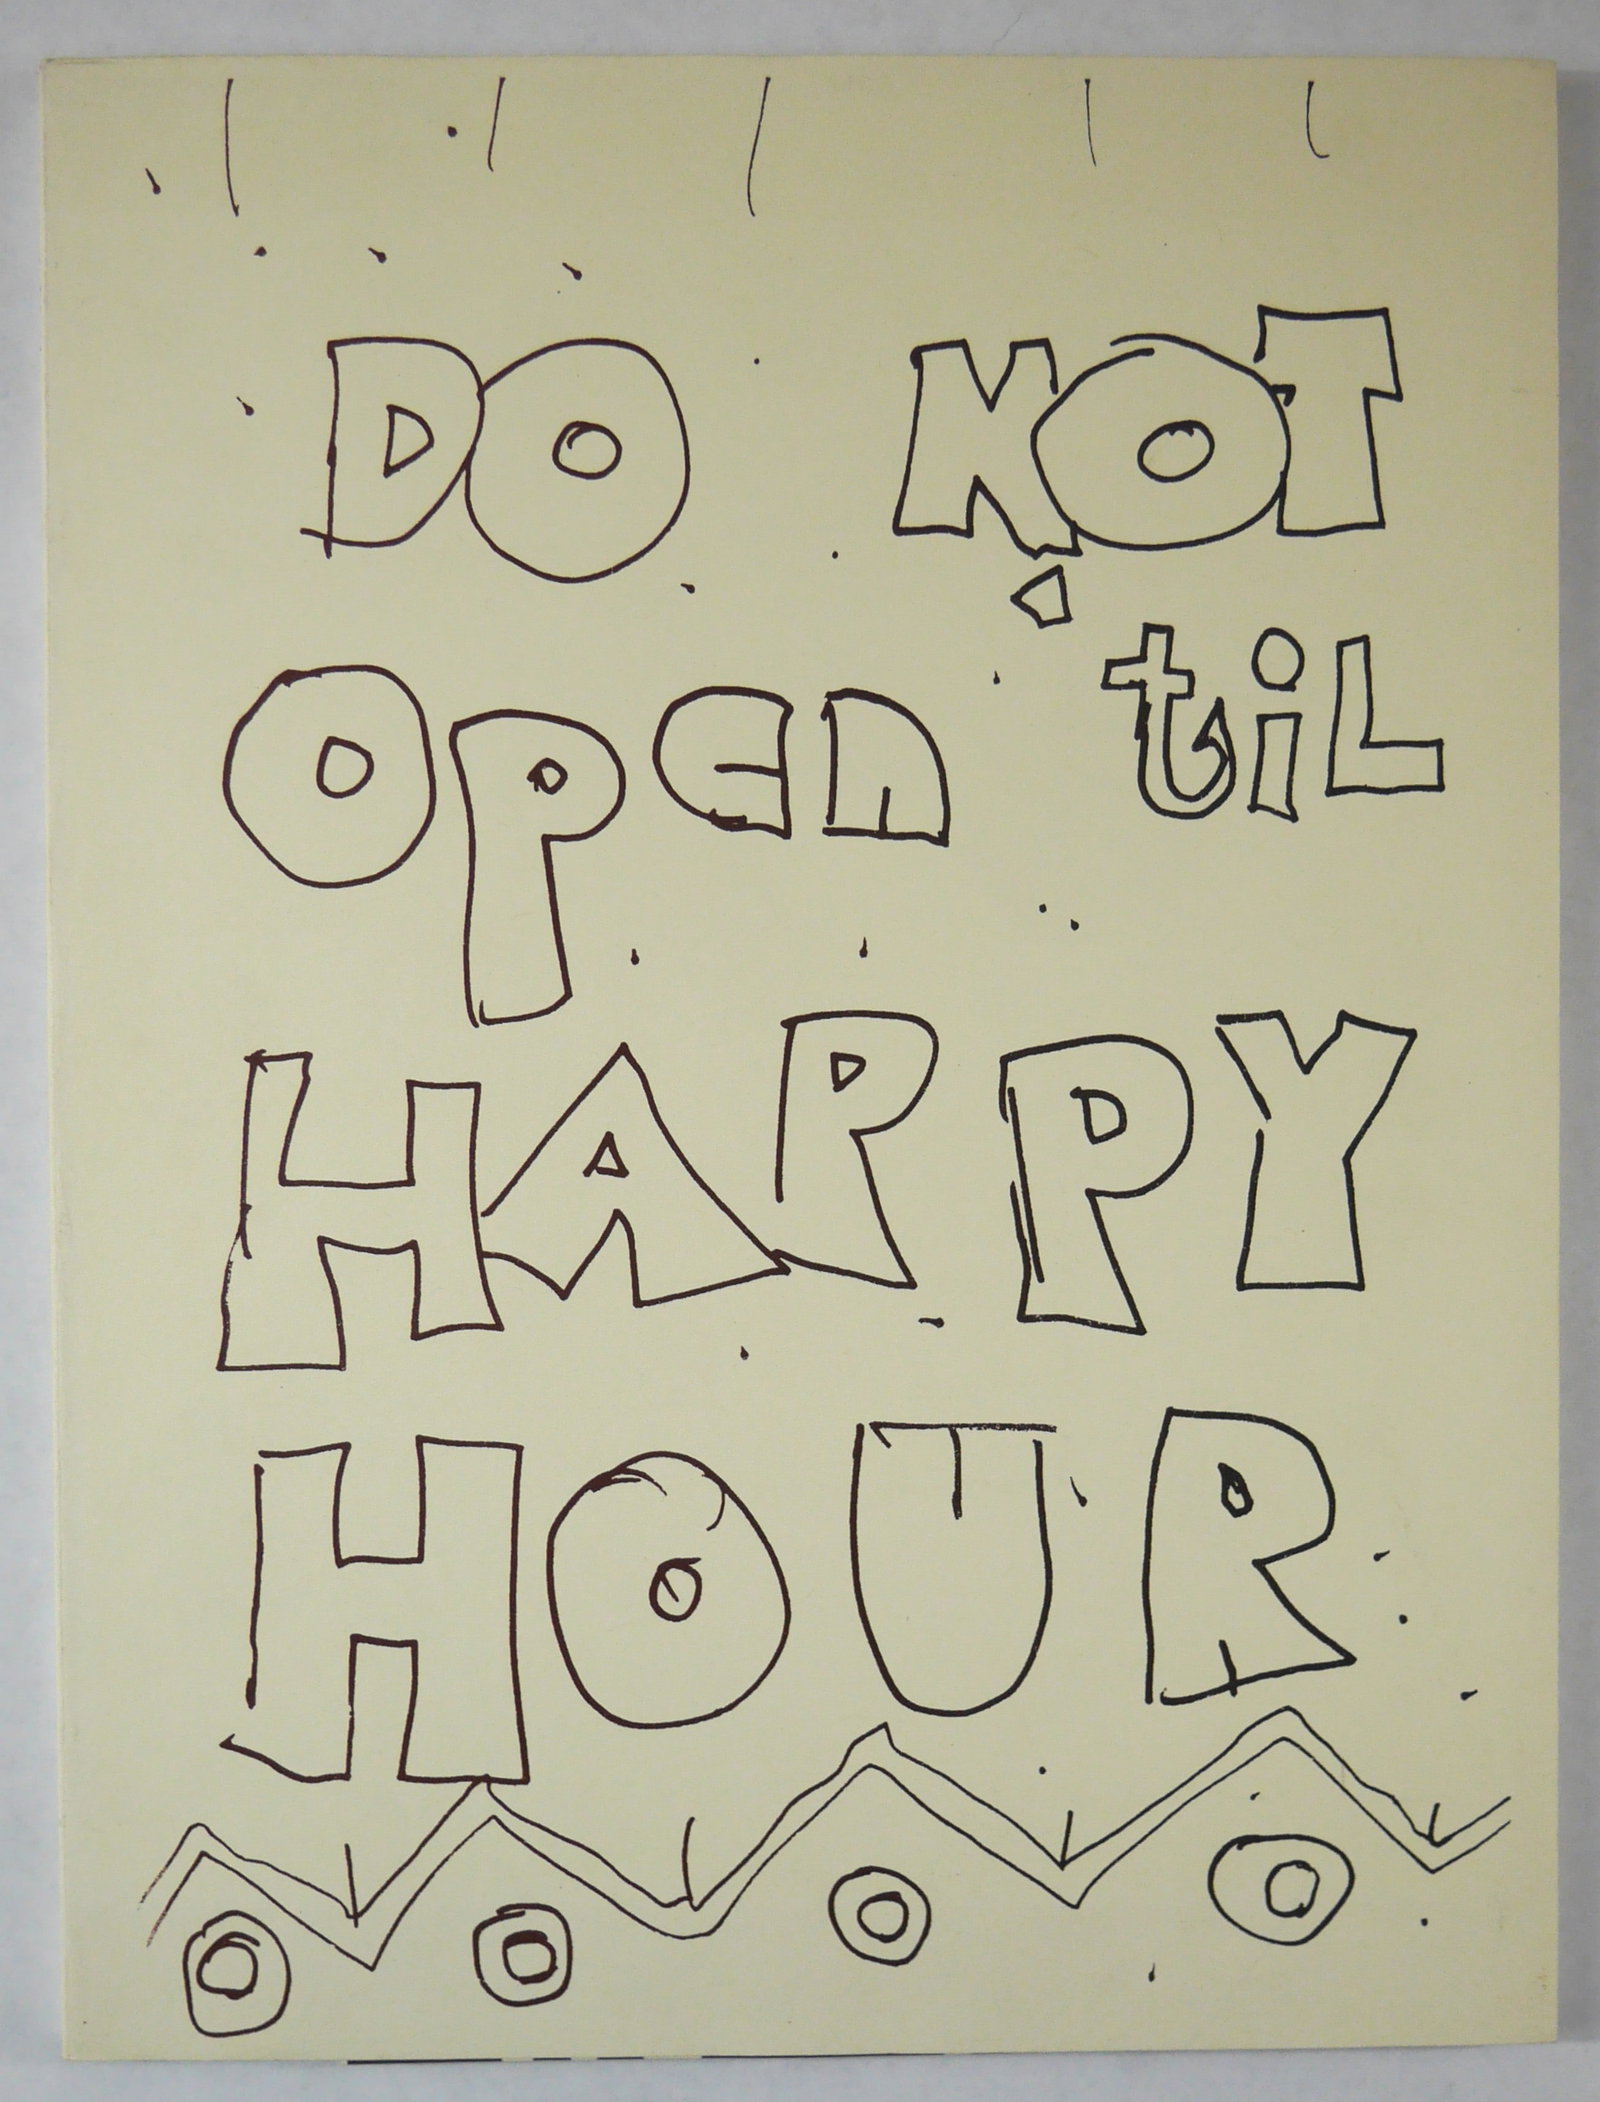 DO NOT
Open tiL
HAPPY
HOUR